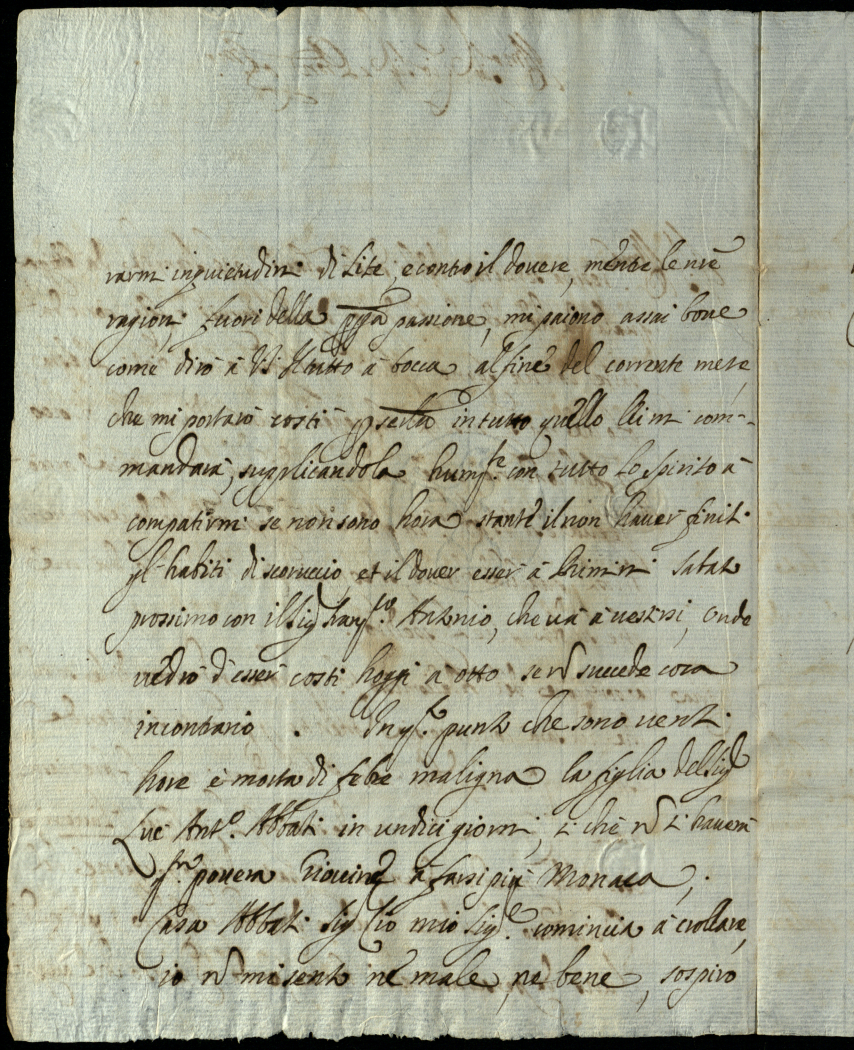 rarmi inquietudini di Lite, e contro il dovere, mentre le nre
ragioni fuori della ppa passione, mi paiono assai bone
come dirò à VS Il tutto à bocca al fine del corrente mese,
che mi portarò costi p servirla in tutto quello che mi com-
mandarà, supplicandola humte con tutto Lo spirito à
compatirmi se non sono hora stante il non haver finiti
gl'habiti di scoruccio, et il dover esser à Rimini Sabato
prossimo con il Sigr Antonio, che và à vestirsi, Onde
vedrò d'esser costi hoggi à otto se nō succede cosa
incontrario. In qto punto che sono venti
hore è morta di febre maligna la figlia del Sigr
Luc' Anto. Abbati in undici giorni, si che nō si haverà
povera Giovine à farsi più Monaca,.
Casa Abbati Sigr Zio mio Sigre. comincia à crollare,
io nō mi sento nè male, ne bene, sospiro